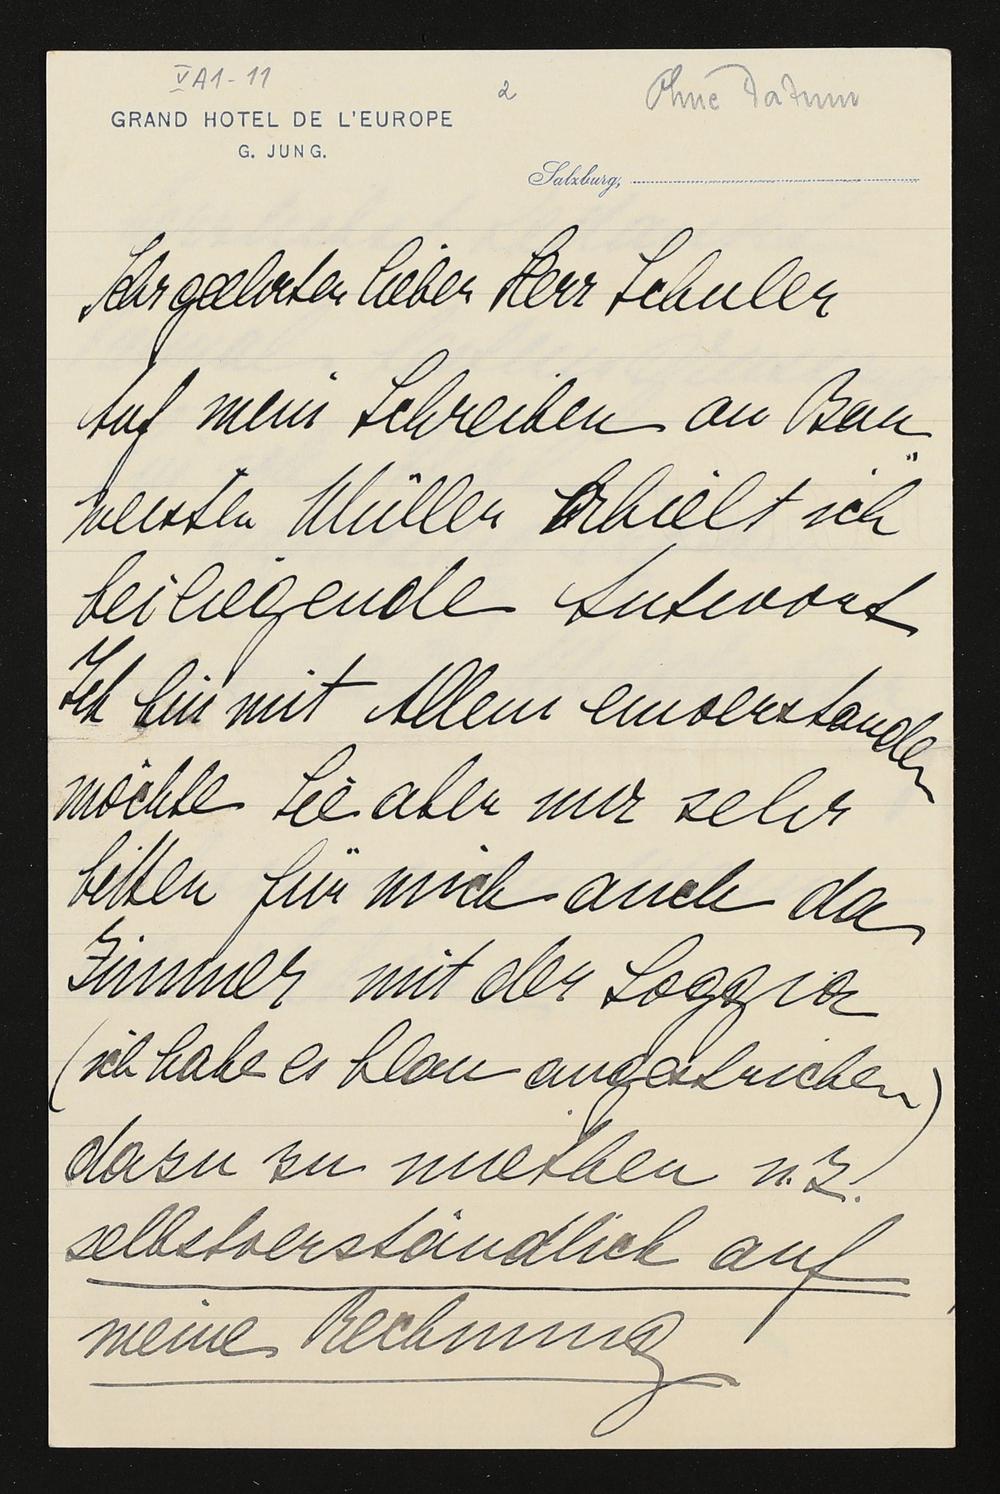 V A1-11
2
Ohne Datum
GRAND HOTEL DE L'EUROPE
G. JUNG.
Salzburg,
Sehr geehrter lieber Herr Schuler
Auf mein Schreiben an Bau
meister Müller erhielt ich
beiliegende Antwort
Ich bin mit Allem einverstanden
möchte Sie aber nur sehr
bitten für mich auch da
Zimmer mit der Loggia
(ich habe es blau angestrichen)
dazu zu miethen u. z.
selbstverständlich auf
meine Rechnung